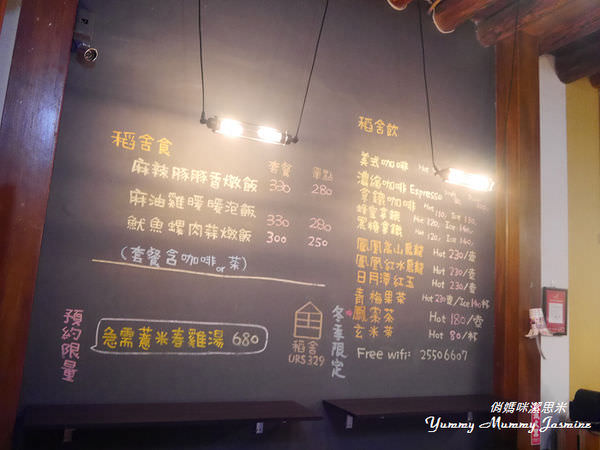 稻舍食
套餐 單點
麻辣豚豚香燉飯 330 280
麻油雞暖暖泡飯 330 280
魷魚螺肉蒜燉飯 300 250
(套餐含咖啡or茶)
預約限量
急需薏米春雞湯 680
稻舍
URS329
冬季限定
稻舍飲
美式咖啡 Hot
濃縮咖啡 Espresso
拿鐵咖啡 Hot 110, Ice 130
蜂蜜拿鐵 Hot 120, Ice 140
黑糖拿鐵 Hot 120, Ice 140
鳳凰高山烏龍 Hot 230/壺
鳳凰紅水烏龍 Hot 230/壺
日月潭紅玉 Hot 230/壺
青梅果茶 Hot 230壺/Ice 140杯
鳳棗茶 Hot 180/壺
玄米茶 Hot 80/杯
Free wifi: 25506607
俏媽咪潔思米
Yummy Mummy Jasmine